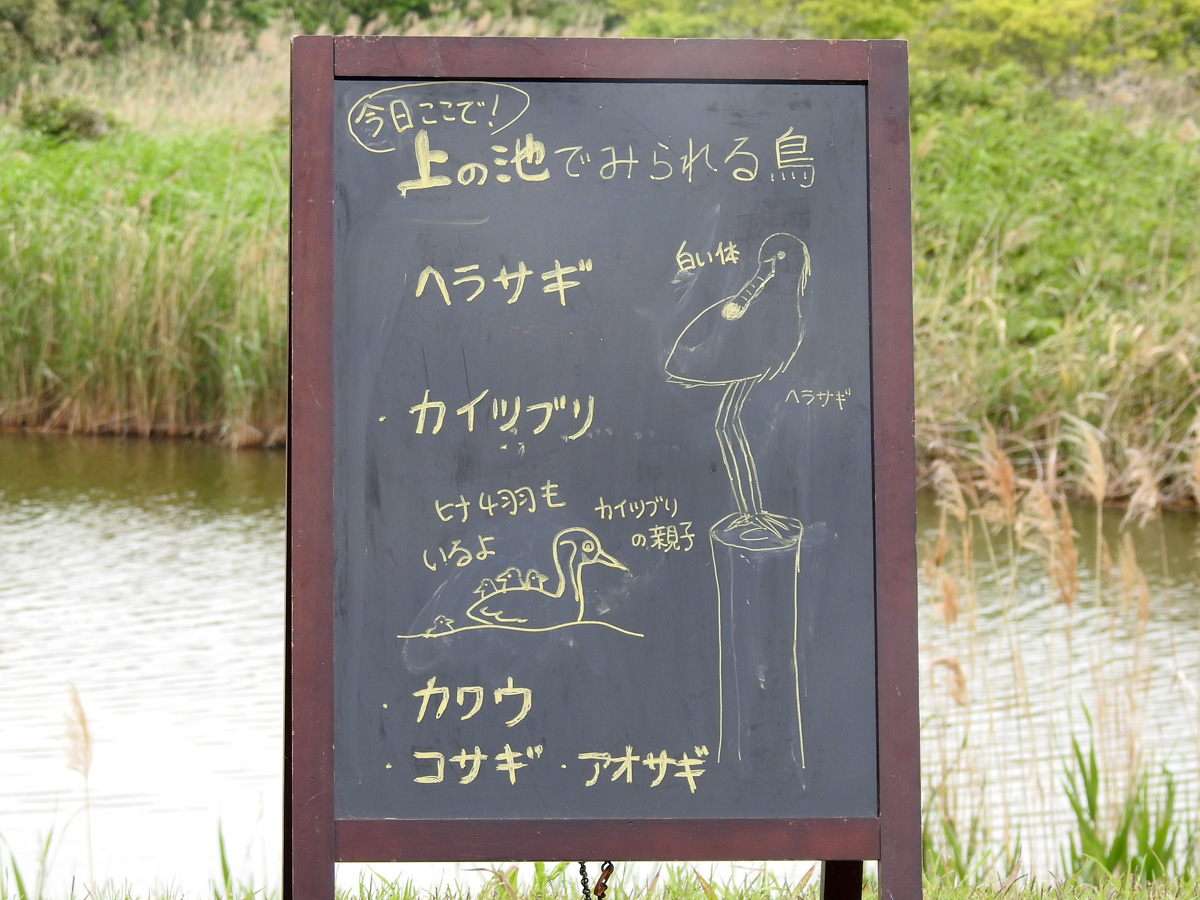 今日ここで!
上の池でみられる鳥
白い体
ヘラサギ
ヘラサギ
・カイツブリ
ヒナ4羽も
いるよ
カイツブリ
の親子
・カワウ
・コサギ・アオサギ